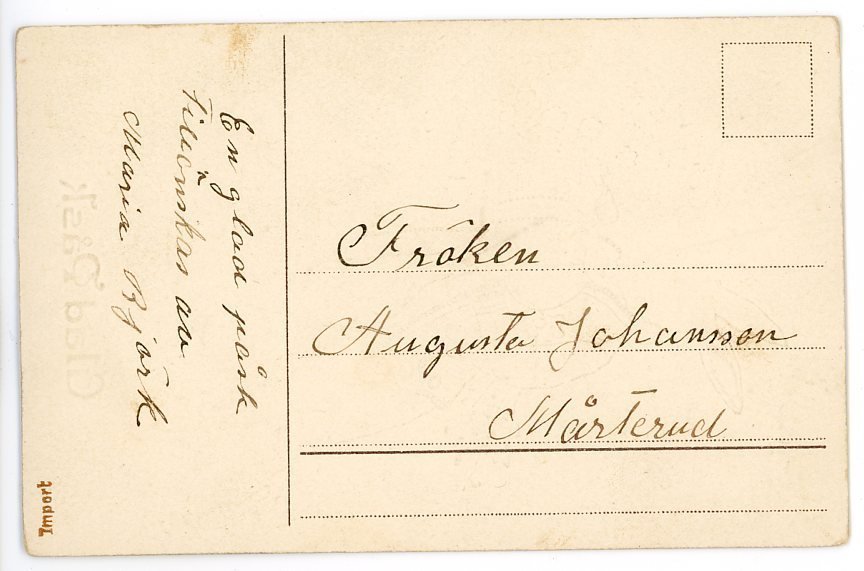 En glad påsk
Tillönskas av
Maria Björk
Fröken
Augusta Johansson
Mårterud
Import
Glad Påsk